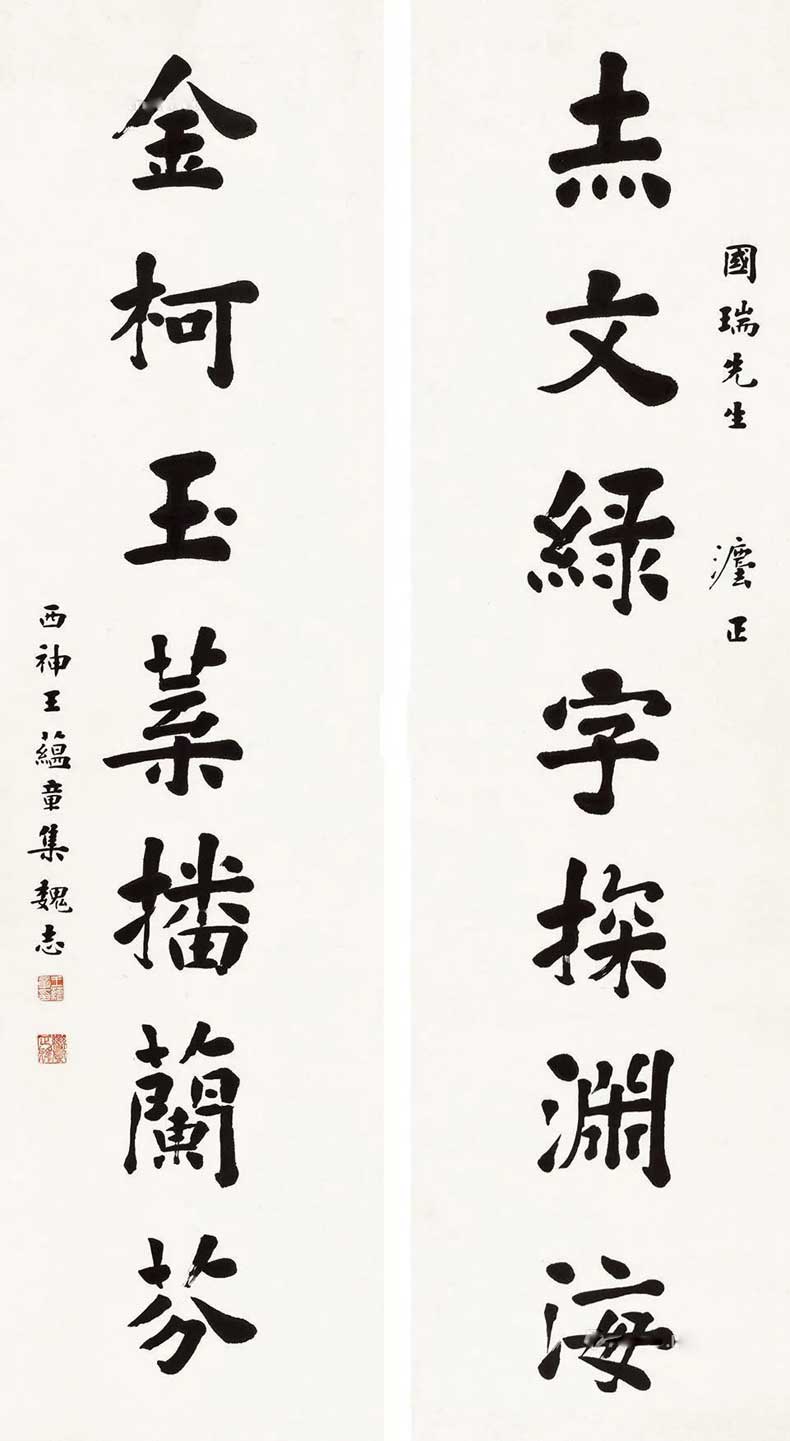 國瑞先生 灋正
赤文緑字探淵海
金柯玉葉播蘭芬
西神王蘊章集魏志